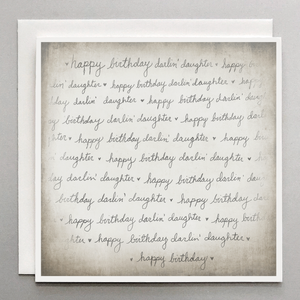 • happy birthday darlin' daughter • happy bi
day darlin' daughter • happy birthday darlin' daugh
day darlin' daughter • happy birthday darlin' da
happy birthday darlin' daughter • happy birthda
ghter • happy birthday darlin' daughter • happy b
daughter • happy birthday darlin' daughter
day darlin' daughter • happy birthday darlin' dau
birthday darlin' daughter • happy birthday da
• happy birthday darlin' daughter • happy birth
daughter • happy birthday darlin' daughter •
• happy birthday •